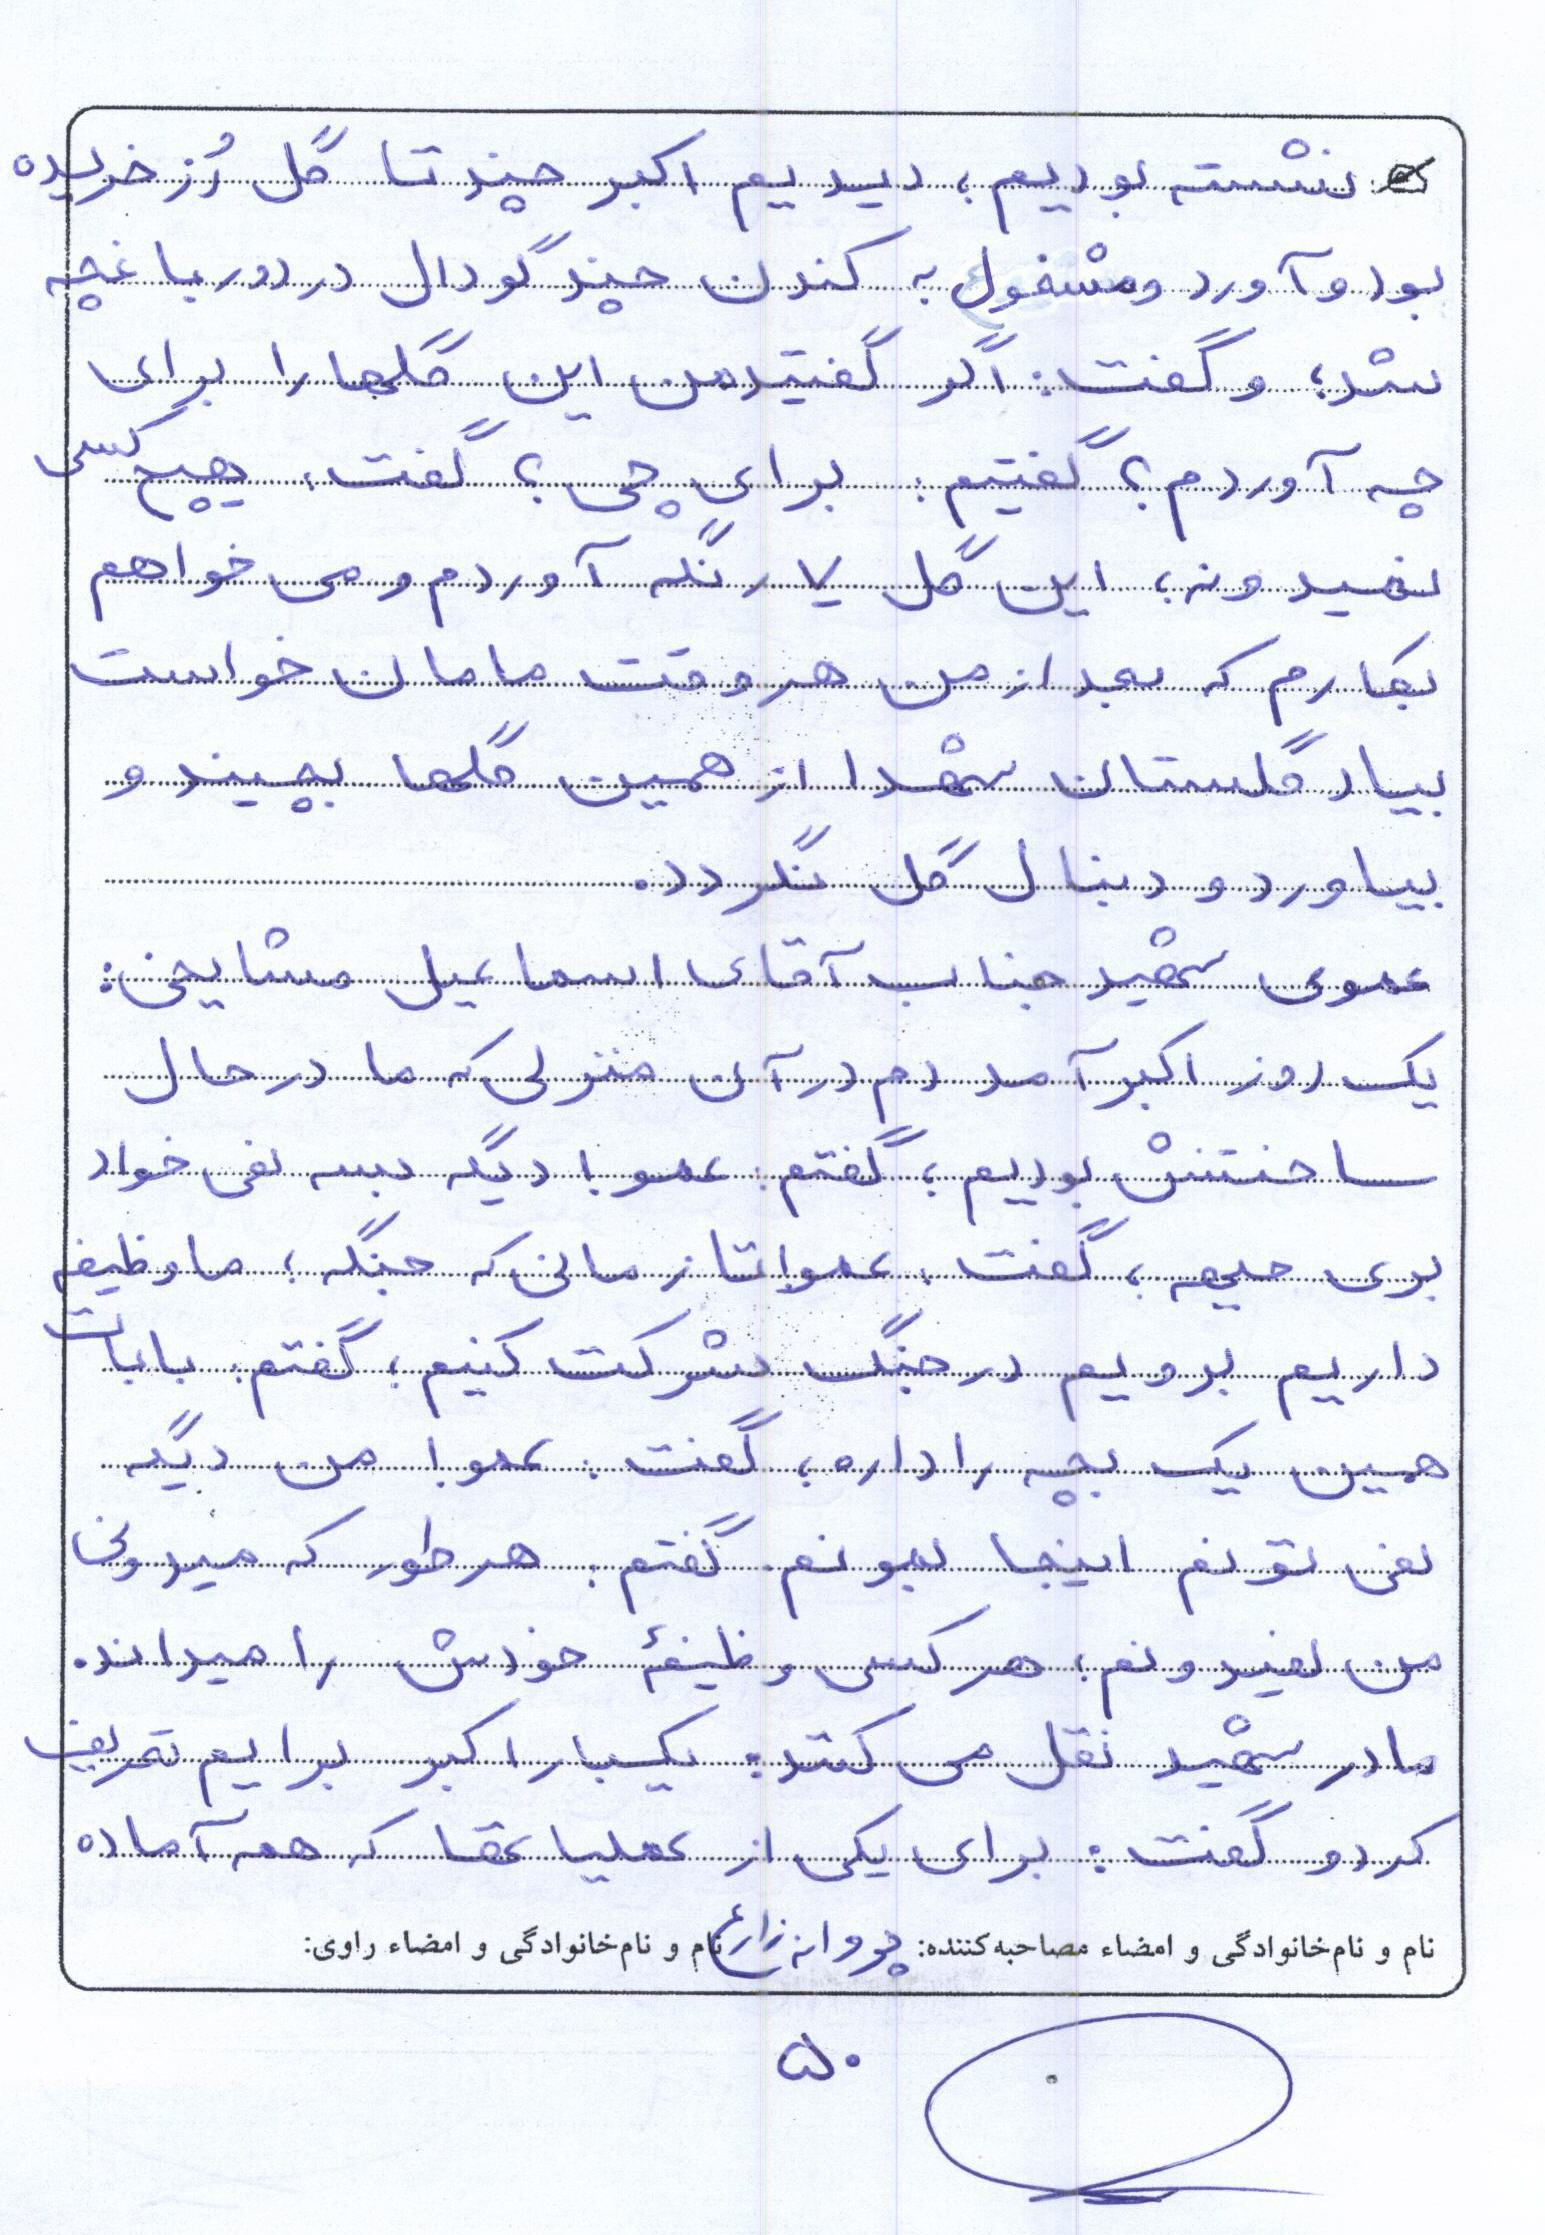 نشسته بودیم؛ دیدیم اکبر چند تا گل رُز خریده
بود و آورد و مشغول به کندن چند گودال در دور باغچه
شد؛ و گفت: اگر گفتید من این گلها را برای
چه آوردم؟ گفتیم: برای چی؟ گفت: هیچ کسی
نمیدونه؛ این گل ۷ رنگه آوردم و می خواهم
بکارم که بعد از من هر وقت مامان خواست
بیاد گلستان شهدا از همین گلها بچیند و
بیاورد و دنبال گل نگردد.
عموی شهید جناب آقای اسماعیل مشایخی:
یک روز اکبر آمد دم در آن منزلی که ما در حال
ساختنش بودیم؛ گفتم: عمو! دیگه بسه نمی خواد
بری جبهه؛ گفت: عمو! تا زمانی که جنگه؛ ما وظیفه
داریم برویم در جنگ شرکت کنیم؛ گفتم: بابات
همین یک بچه را داره؛ گفت: عمو! من دیگه
نمی تونم اینجا بمونم. گفتم: هر طور که میدونی
من نمیدونم؛ هر کسی وظیفهٔ خودش را میداند.
مادر شهید نقل می کند: یکبار اکبر برایم تعریف
کرد و گفت: برای یکی از عملیاتها که همه آماده
نام و نام‌خانوادگی و امضاء مصاحبه‌کننده: پروانه زارع نام و نام‌خانوادگی و امضاء راوی:
۵۰